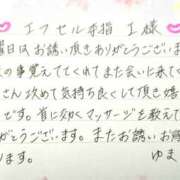 エフセル本指 I様
曜日はお誘い頂きありがとうございま
の事覚えててくれてまた会いに来て
さん攻めて気持ち良くして頂き嬉
です。首に効くマッサージを教えて
がとうございます。またお誘いお
ります。 ゆま